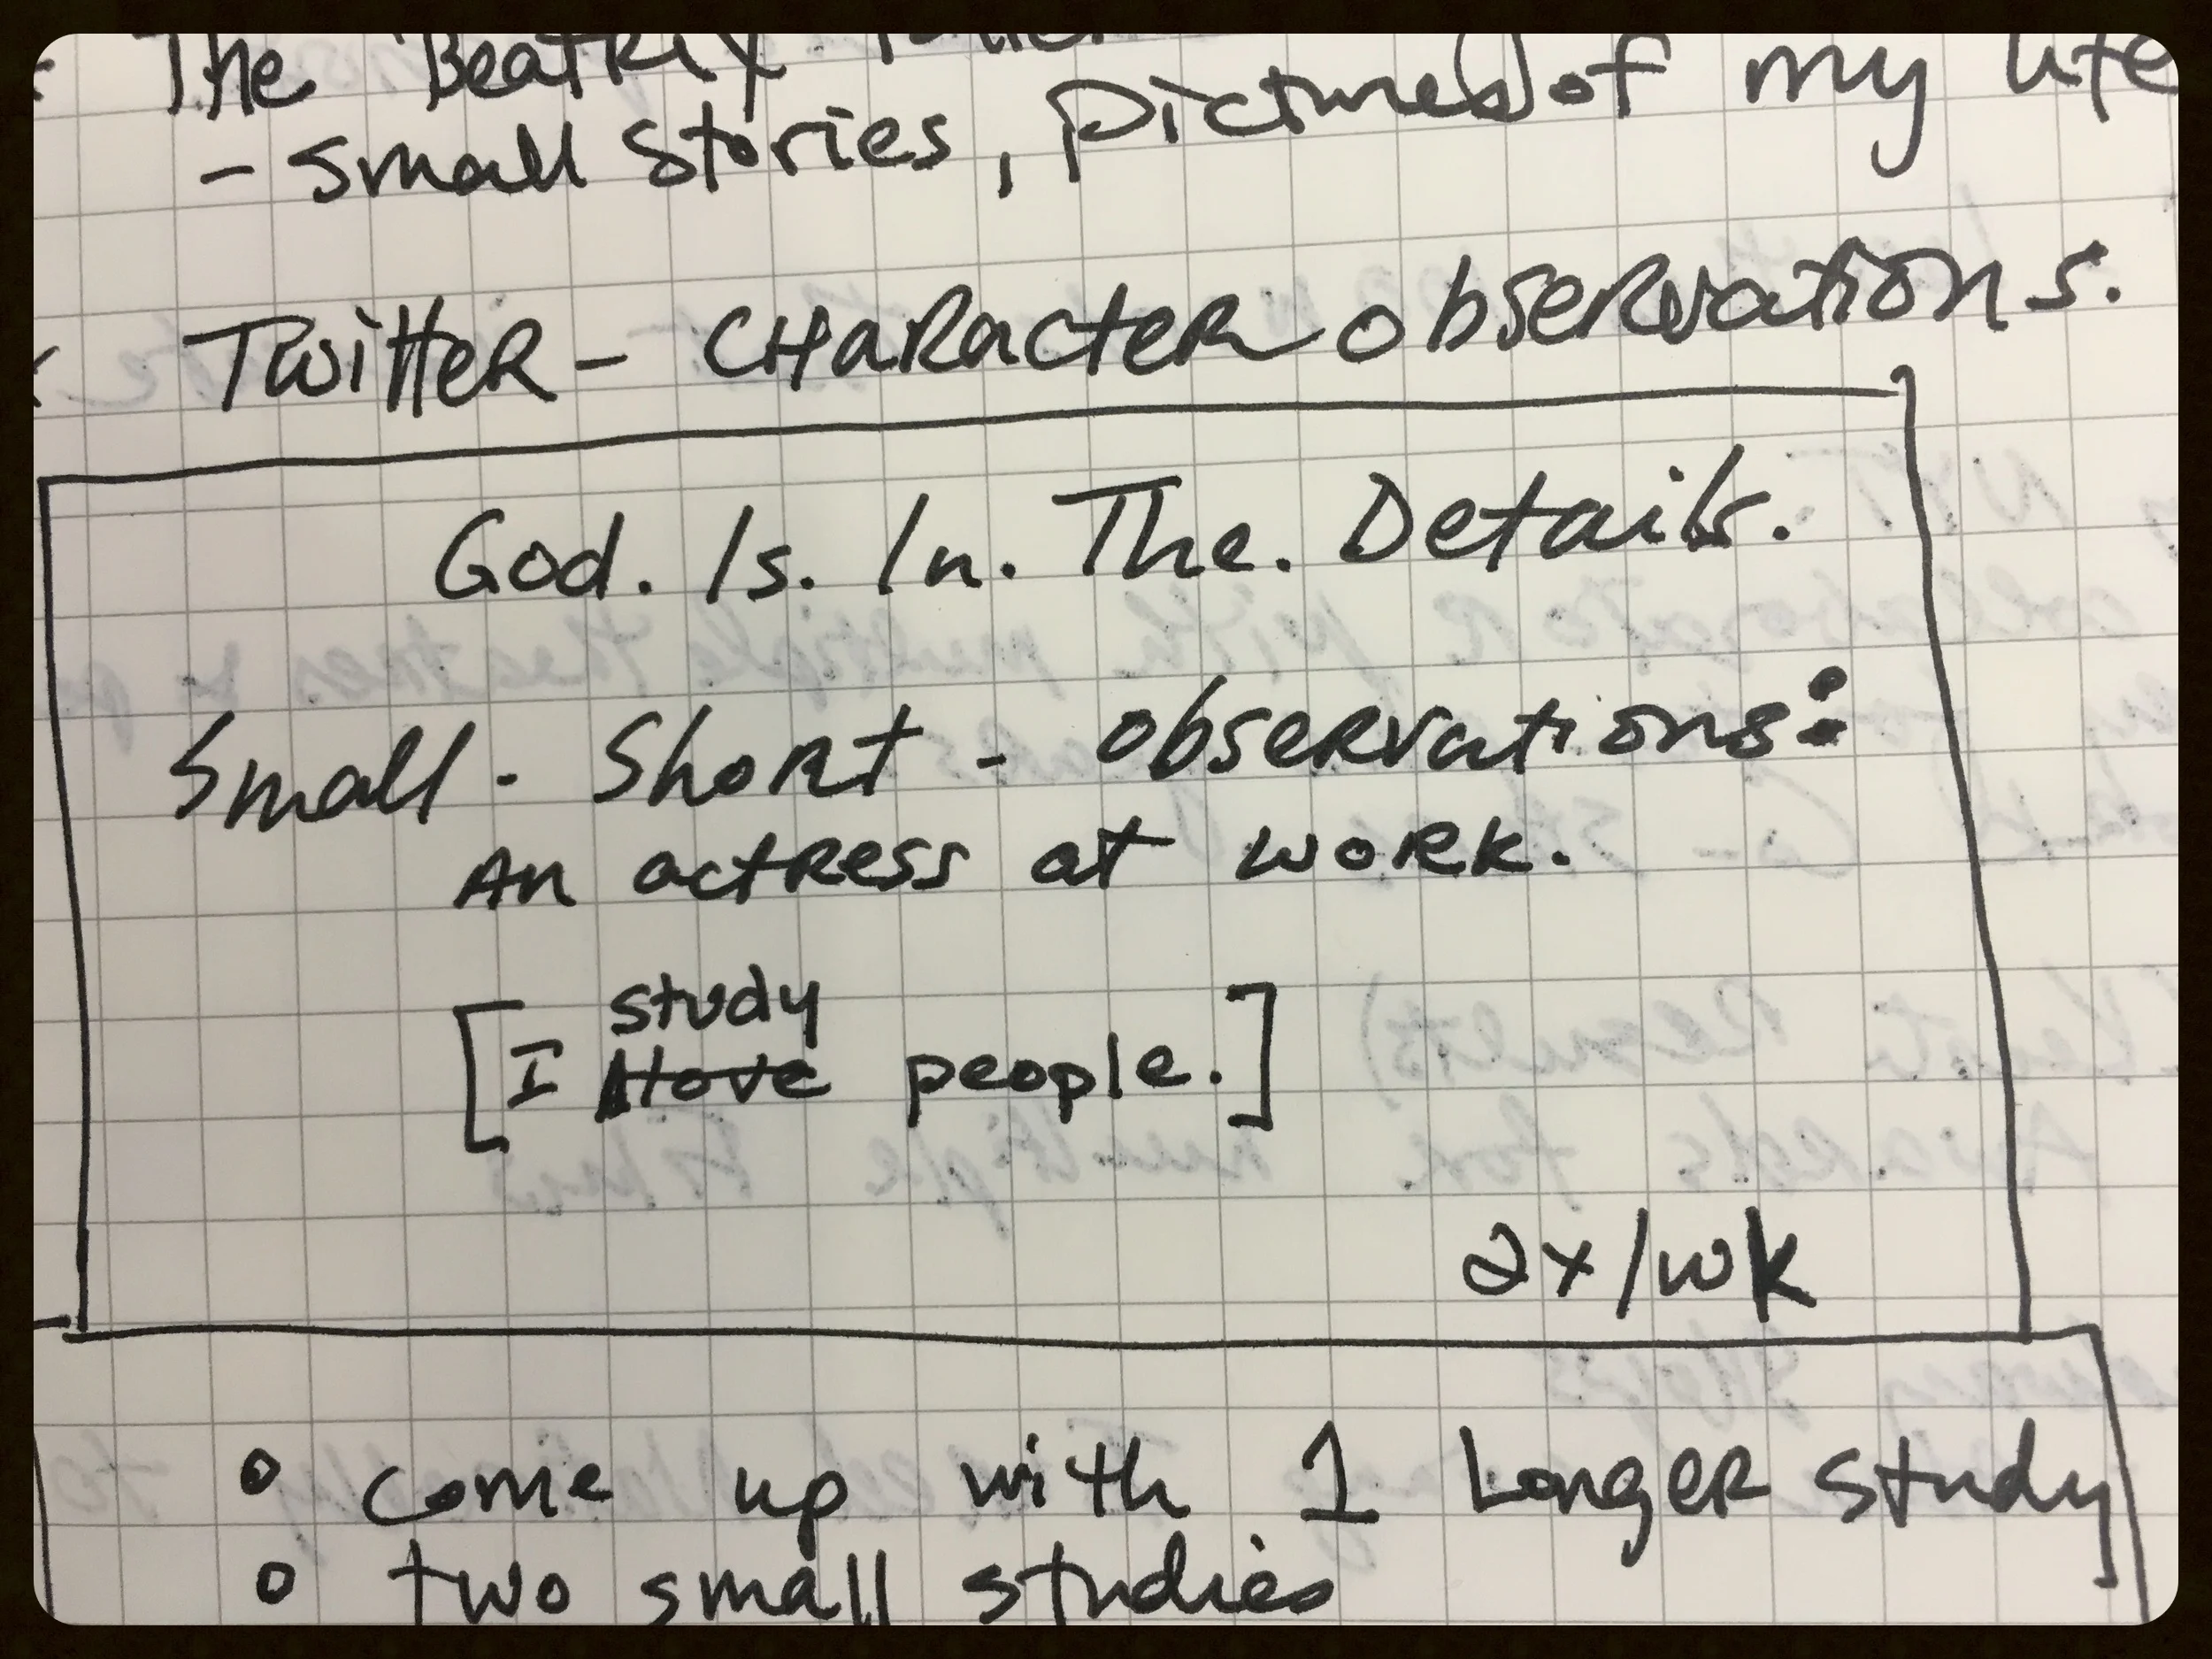 The Beatrix
- small stories, picture(s) of my life
Twitter - Character observations.
God. Is. In. The. Details.
Small - Short - observations:
An actress at work.
study
[I love people.]
2x/wk
o come up with 1 longer study
o two small studies